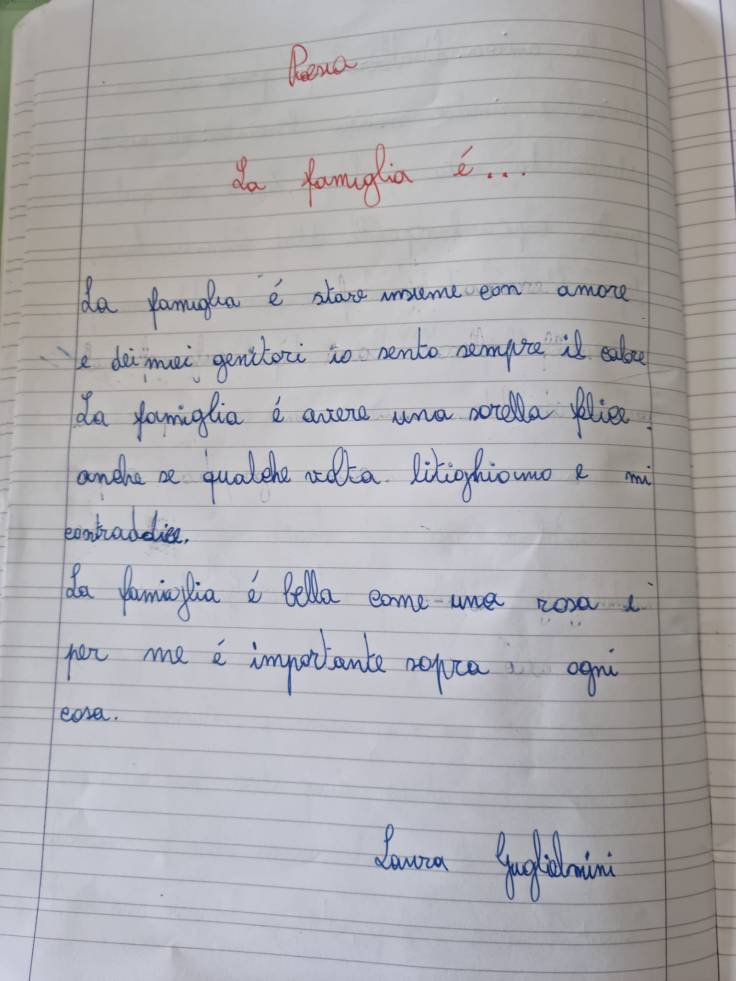 Poesia
La famiglia é...
La famiglia é stare insieme con amore
e dei miei genitori io sento sempre il calore
La famiglia é avere una sorella felice
anche se qualche volta litighiamo e mi
contraddice.
La famiglia é bella come una rosa e
per me é importante sopra ogni
cosa.
Laura Guglielmini